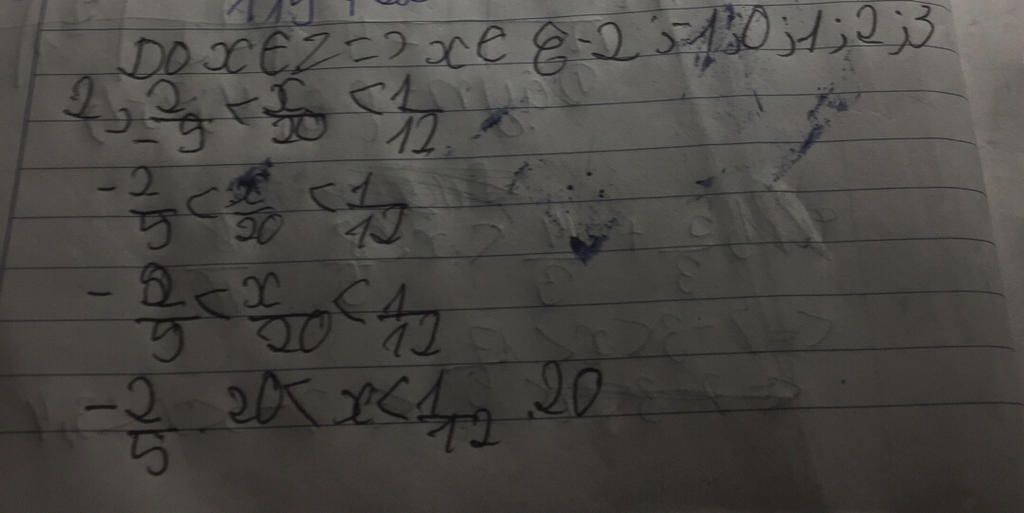 Do x ∈ Z => x ∈ {-2; -1; 0; 1; 2; 3
2, 2/-9 < x/20 < 1/12
-2/5 < x/20 < 1/12
-2/9 < x/20 < 1/12
-2/5 . 20 < x < 1/12 . 20